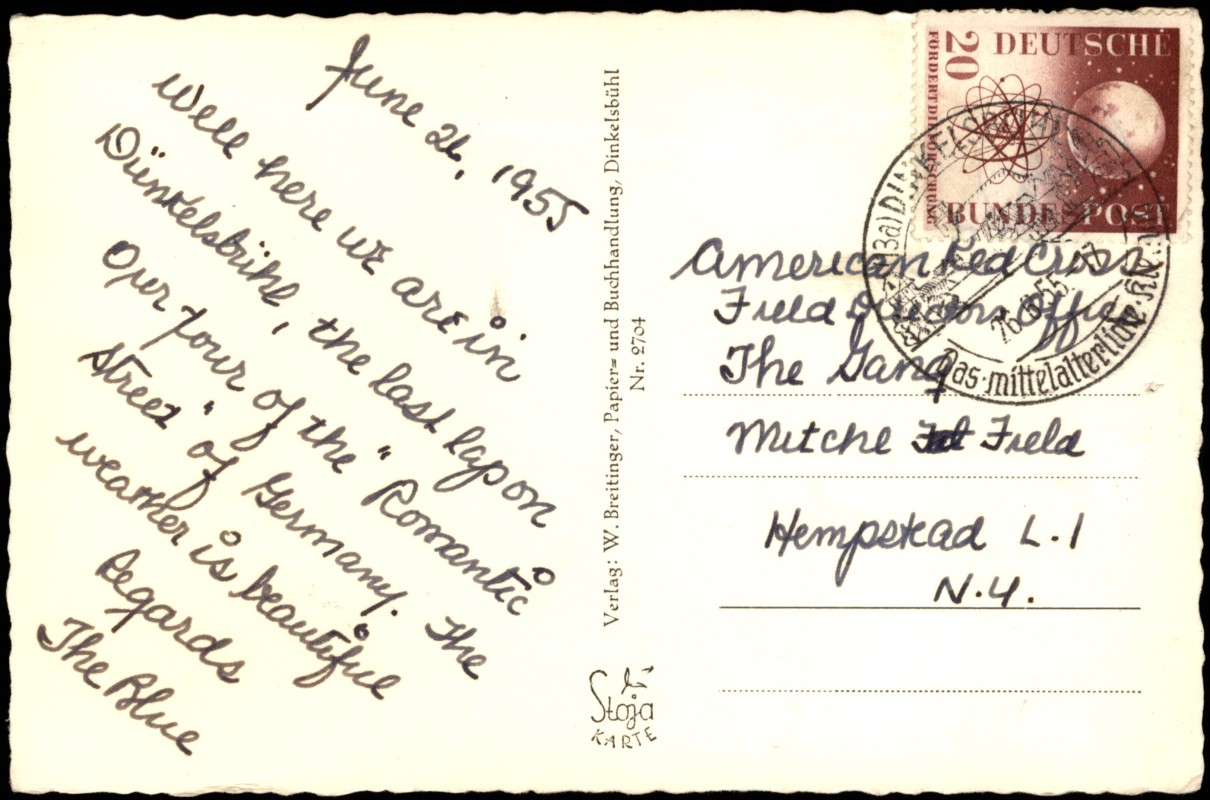 June 26, 1955
Well here we are in
Dünkelsbühl, the last lap on
Our tour of the "Romantic
Street" of Germany. The
weather is beautiful
Regards
The Blue
Verlag: W. Breitinger, Papier= und Buchhandlung, Dinkelsbühl
Nr. 2704
Stoja
KARTE
DEUTSCHE
20
FÖRDERT DIE FORSCHUNG
BUNDESPOST
DINKELSBÜHL
26.6.55
Das mittelalterliche
American Red Cross
Field Directors Office
The Gang
Mitche Field
Hempstead L.I
N.Y.